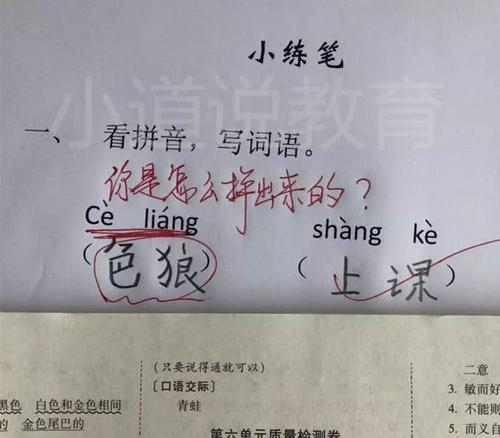 小练笔
小道说教育
一、 看拼音，写词语。
你是怎么拼出来的？
Cè liáng shàng kè
（色狼） （上课）
(只要说得通就可以) 二意
〔口语交际〕 3. 敏而好
黑色 白色和金色相间 青蛙 4. 不能则
的 金色尾巴的 第六单元质量检测卷 5. 而义自